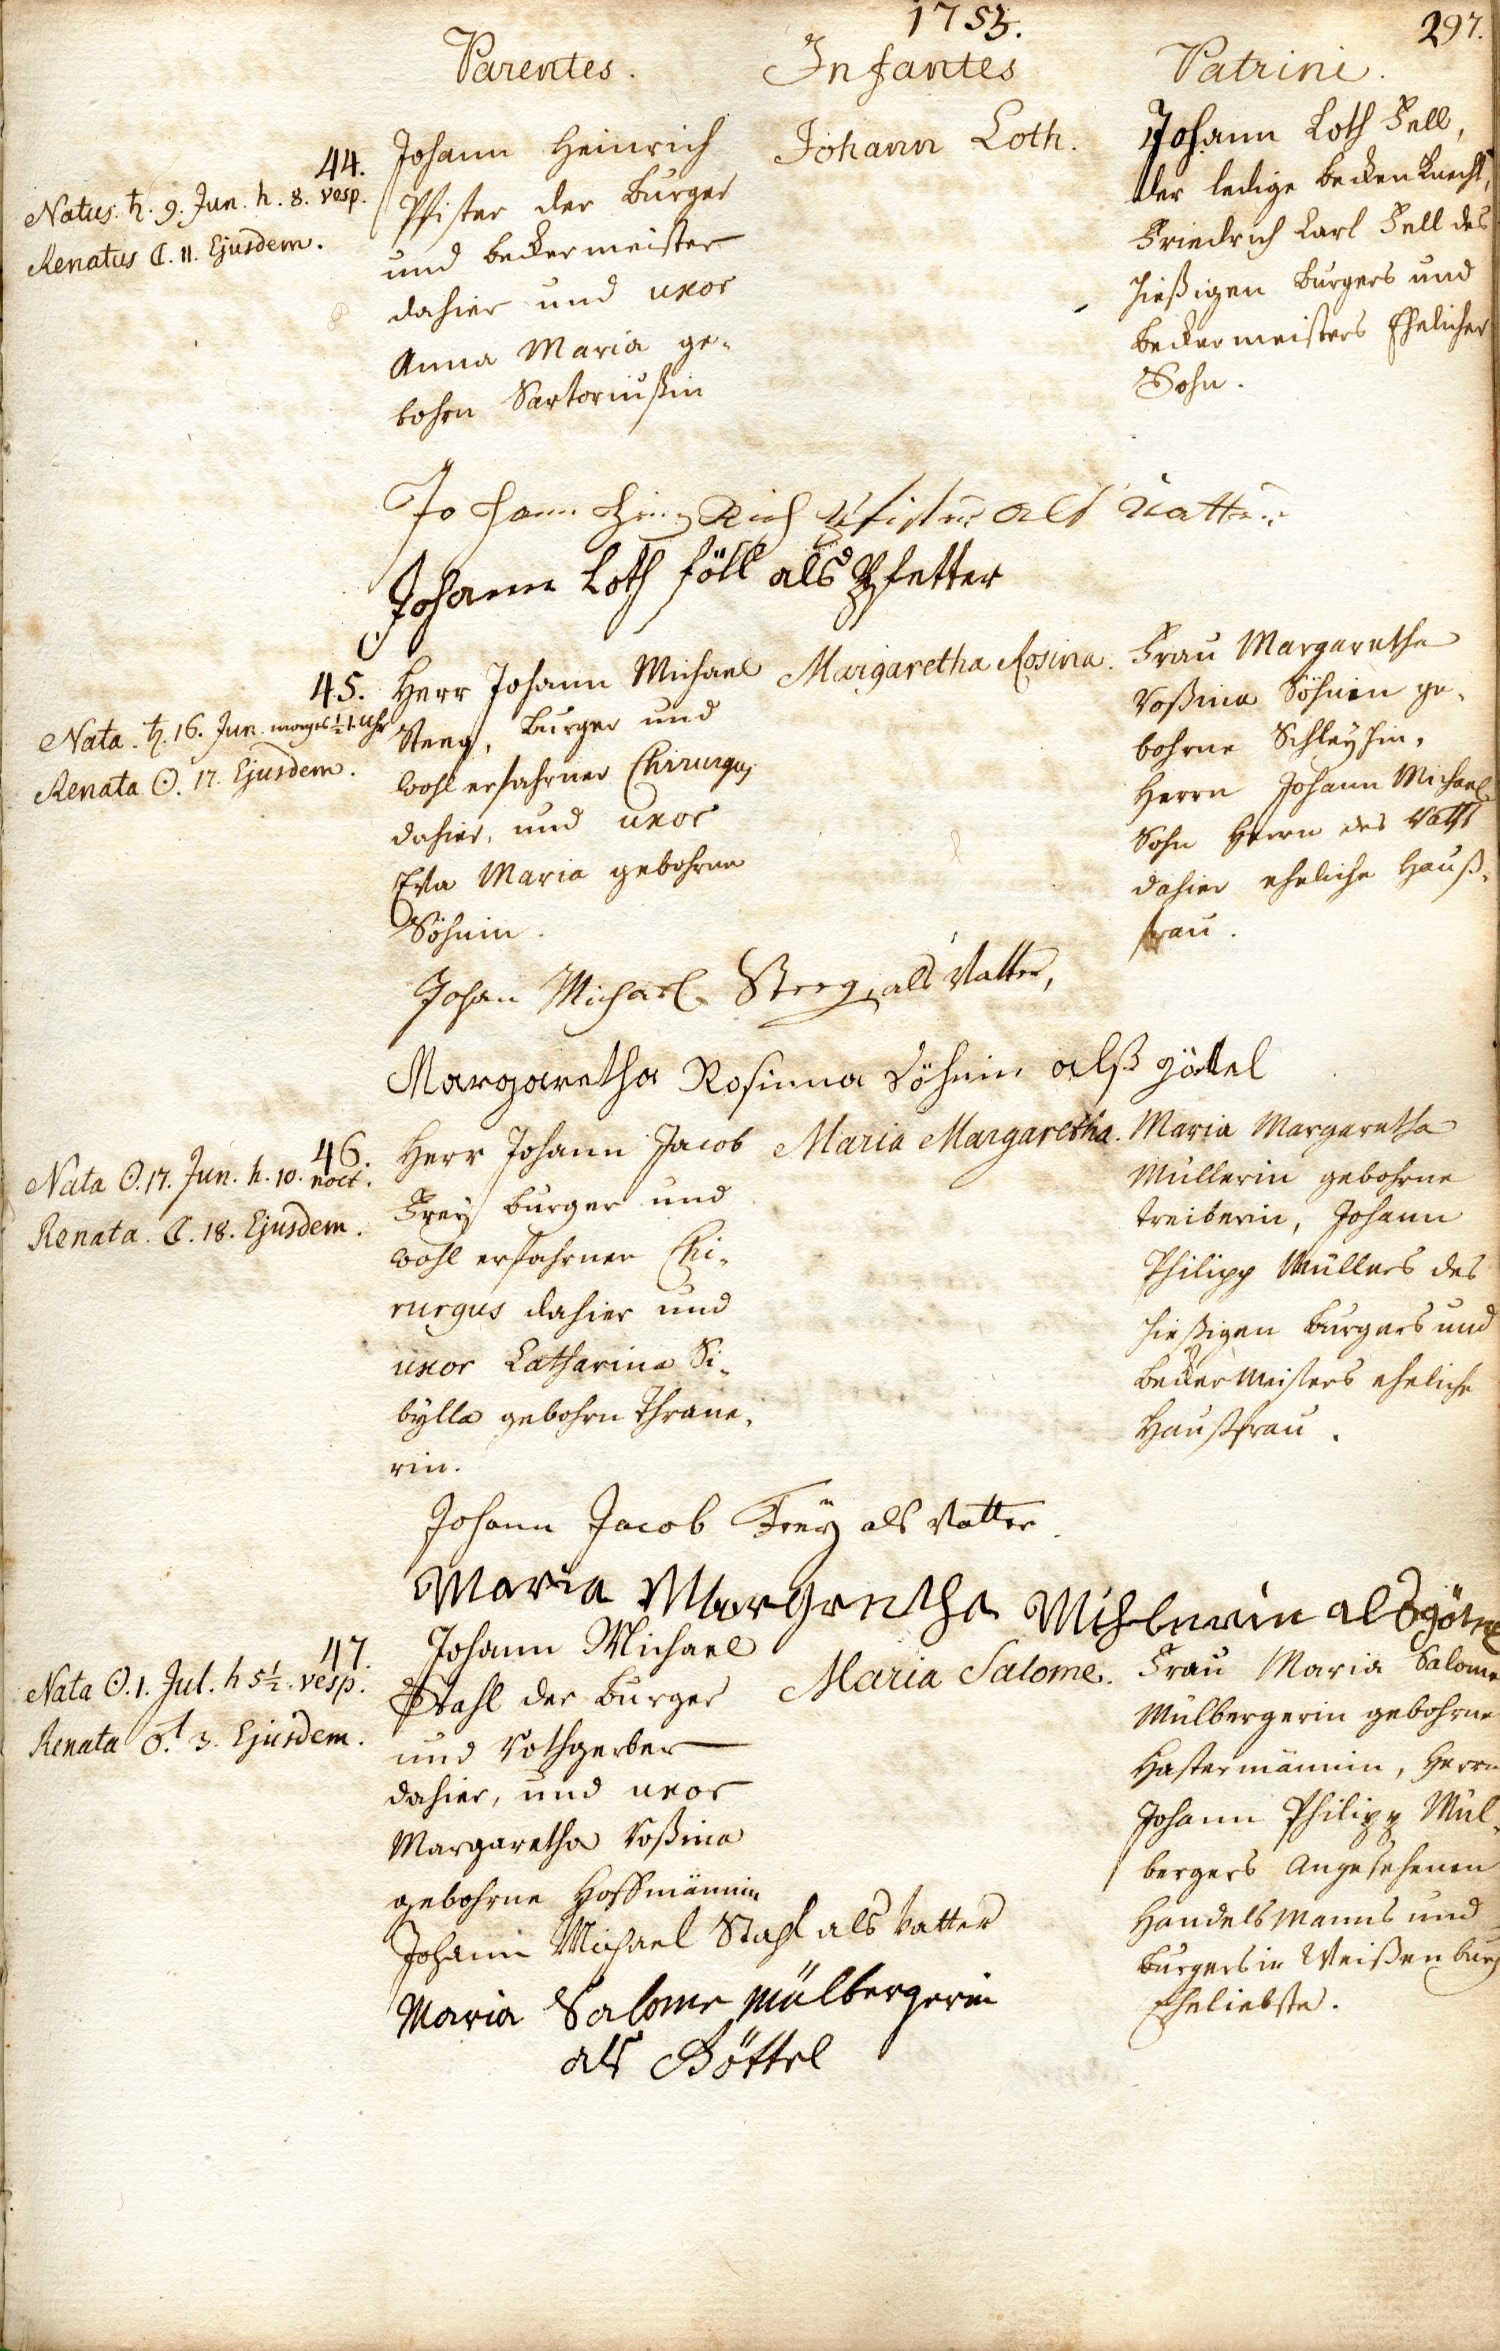 1753.
297.
Parentes.
Infantes
Patrini.
44.
Natus. ♄. 9. Jun. h. 8. vesp.
Renatus ☾. 11. Ejusdem.
Johann Heinrich
Pfister der Burger
und beckermeister
dahier und uxor
Anna Maria ge-
bohrn Sartoriußin
Johann Loth.
Johann Loth Fell,
der ledige becken Knecht,
Friedrich Carl Fell des
hießigen Burgers und
beckermeisters Ehelicher
Sohn.
Johann Hein Rich Pfister als Vatter
Johann Loth föll als Pfetter
45.
Nata. ♄. 16. Jun. morgens ½ 1. Uhr
Renata ☉. 17. Ejusdem.
Herr Johann Michael
Steeg, Burger und
wohl erfahrner Chirurgus
dahier, und uxor
Eva Maria gebohrne
Söhnin.
Margaretha Rosina.
Frau Margaretha
Roßina Söhnin ge-
bohrne Schleyhin,
Herrn Johann Michael
Sohn Herrn des Raths
dahier eheliche Hauß-
frau.
Johan Michael Steeg, als Vatter,
Margaretha Rosinna Söhnin alß göttel
46.
Nata ☉. 17. Jun. h. 10. noct.
Renata. ☾. 18. Ejusdem.
Herr Johann Jacob
Frey Burger und
wohl erfahrner Chi-
rurgus dahier und
uxor Catharina Si-
bylla gebohrn Thrane-
rin.
Maria Margaretha.
Maria Margaretha
Müllerin gebohrne
Treiberin, Johann
Philipp Müllers des
hießigen Burgers und
beckermeisters eheliche
Haußfrau.
Johann Jacob Freÿ als Vatter.
Maria Margretha Mihlerin als götel
47.
Nata ☉. 1. Jul. h 5½. vesp.
Renata ♂. 3. Ejusdem.
Johann Michael
Stahl der Burger
und Rothgerber
dahier, und uxor
Margaretha Roßina
gebohrne Hoffmännin
Maria Salome.
Frau Maria Salome
Mülbergerin gebohrne
Hastermännin, Herrn
Johann Philipp Mül-
bergers Angesehenen
Handelsmanns und
Burgers in Weißenburg
Eheliebste.
Johann Michael Stahl als Vatter
Maria Salome Mülbergerin
als Göttel